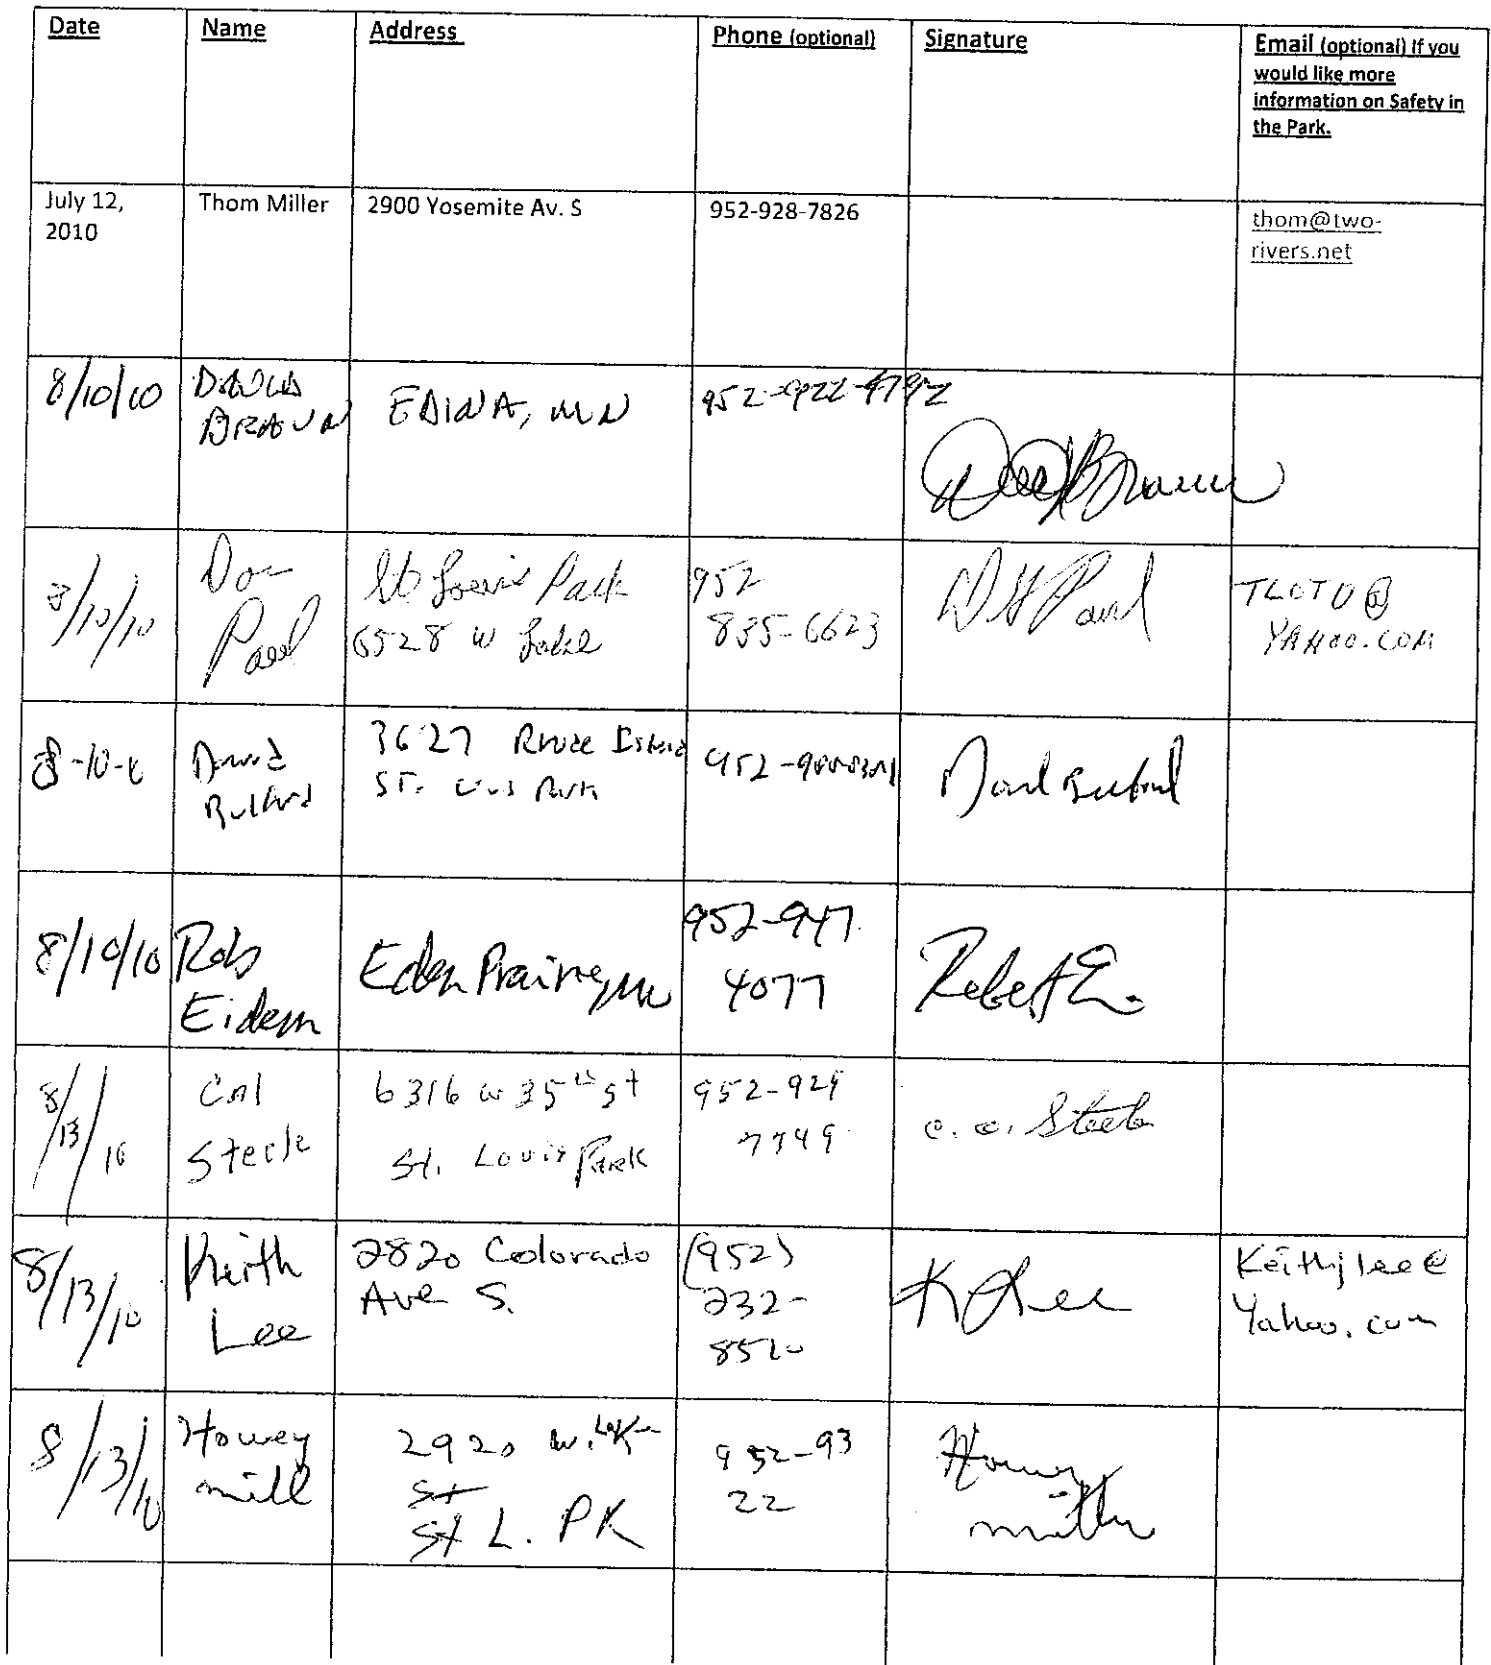 Date
Name
Address
Phone (optional)
Signature
Email (optional) If you
would like more
information on Safety in
the Park.
July 12,
2010
Thom Miller
2900 Yosemite Av. S
952-928-7826
thom@two-
rivers.net
8/10/10
BRAUN
EDINA, MN
8/10/10
Don
Paul
St Louis Park
6528 W Lake
952
835-6623
TLOTO@
YAHOO.COM
David
3627 Rhode Island
ST. Park
952-
8/10/10
Rob
Eidem
Eden Prairie, MN
952-947
4077
8/13/10
Cal
Steele
6316 W 35th St
St. Louis Park
952-929
7749
c. c. Steele
8/13/10
Keith
Lee
2820 Colorado
Ave S.
(952)
232-
8520
K Lee
Keithjlee@
Yahoo.com
8/13/10
Howey
mill
2920 W. Lake
St
St L. PK
952-93
22